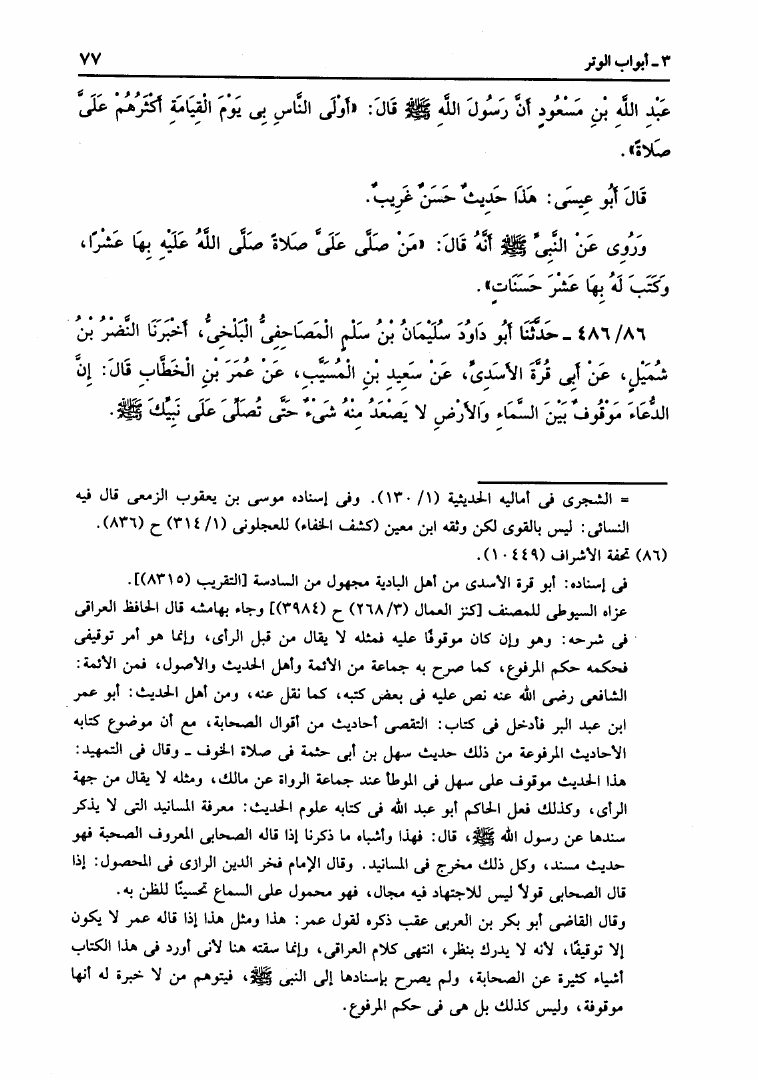 ٣ ـ أبواب الوتر ٧٧
عَبْدِ اللَّهِ بْنِ مَسْعُودٍ أَنَّ رَسُولَ اللَّهِ ﷺ قَالَ: «أَوْلَى النَّاسِ بِى يَوْمَ الْقِيَامَةِ أَكْثَرُهُمْ عَلَىَّ
صَلاَةً».
قَالَ أَبُو عِيسَى: هَذَا حَدِيثٌ حَسَنٌ غَرِيبٌ.
وَرُوِى عَنْ النَّبِىِّ ﷺ أَنَّهُ قَالَ: «مَنْ صَلَّى عَلَىَّ صَلاَةً صَلَّى اللَّهُ عَلَيْهِ بِهَا عَشْرًا،
وَكَتَبَ لَهُ بِهَا عَشْرَ حَسَنَاتٍ».
٤٨٦/٨٦ ـ حَدَّثَنَا أَبُو دَاوُدَ سُلَيْمَانُ بْنُ سَلْمٍ الْمَصَاحِفِىُّ الْبَلْخِىُّ، أَخْبَرَنَا النَّضْرُ بْنُ
شُمَيْلٍ، عَنْ أَبِى قُرَّةَ الأَسَدِىِّ، عَنْ سَعِيدِ بْنِ الْمُسَيَّبِ، عَنْ عُمَرَ بْنِ الْخَطَّابِ قَالَ: إِنَّ
الدُّعَاءَ مَوْقُوفٌ بَيْنَ السَّمَاءِ وَالأَرْضِ لاَ يَصْعَدُ مِنْهُ شَىْءٌ حَتَّى تُصَلِّىَ عَلَى نَبِيِّكَ ﷺ.
= الشجرى فى أماليه الحديثية (١/ ١٣٠). وفى إسناده موسى بن يعقوب الزمعى قال فيه
النسائى: ليس بالقوى لكن وثقه ابن معين (كشف الخفاء) للعجلونى (١/ ٣١٤) ح (٨٣٦).
(٨٦) تحفة الأشراف (١٠٤٤٩).
فى إسناده: أبو قرة الأسدى من أهل البادية مجهول من السادسة [التقريب (٨٣١٥)].
عزاه السيوطى للمصنف [كنز العمال (٢٦٨/٣) ح (٣٩٨٤)] وجاء بهامشه قال الحافظ العراقى
فى شرحه: وهو وإن كان موقوفًا عليه فمثله لا يقال من قبل الرأى، وإنما هو أمر توقيفى
فحكمه حكم المرفوع، كما صرح به جماعة من الأئمة وأهل الحديث والأصول، فمن الأئمة:
الشافعى رضى الله عنه نص عليه فى بعض كتبه، كما نقل عنه، ومن أهل الحديث: أبو عمر
ابن عبد البر فأدخل فى كتاب: التقصى أحاديث من أقوال الصحابة، مع أن موضوع كتابه
الأحاديث المرفوعة من ذلك حديث سهل بن أبى حثمة فى صلاة الخوف ـ وقال فى التمهيد:
هذا الحديث موقوف على سهل فى الموطأ عند جماعة الرواة عن مالك، ومثله لا يقال من جهة
الرأى، وكذلك فعل الحاكم أبو عبد الله فى كتابه علوم الحديث: معرفة المسانيد التى لا يذكر
سندها عن رسول الله ﷺ، قال: فهذا وأشباه ما ذكرنا إذا قاله الصحابى المعروف الصحبة فهو
حديث مسند، وكل ذلك مخرج فى المسانيد. وقال الإمام فخر الدين الرازى فى المحصول: إذا
قال الصحابى قولاً ليس للاجتهاد فيه مجال، فهو محمول على السماع تحسينًا للظن به.
وقال القاضى أبو بكر بن العربى عقب ذكره لقول عمر: هذا ومثل هذا إذا قاله عمر لا يكون
إلا توقيفًا، لأنه لا يدرك بنظر، انتهى كلام العراقى، وإنما سقته هنا لأنى أورد فى هذا الكتاب
أشياء كثيرة عن الصحابة، ولم يصرح بإسنادها إلى النبى ﷺ، فيتوهم من لا خبرة له أنها
موقوفة، وليس كذلك بل هى فى حكم المرفوع.